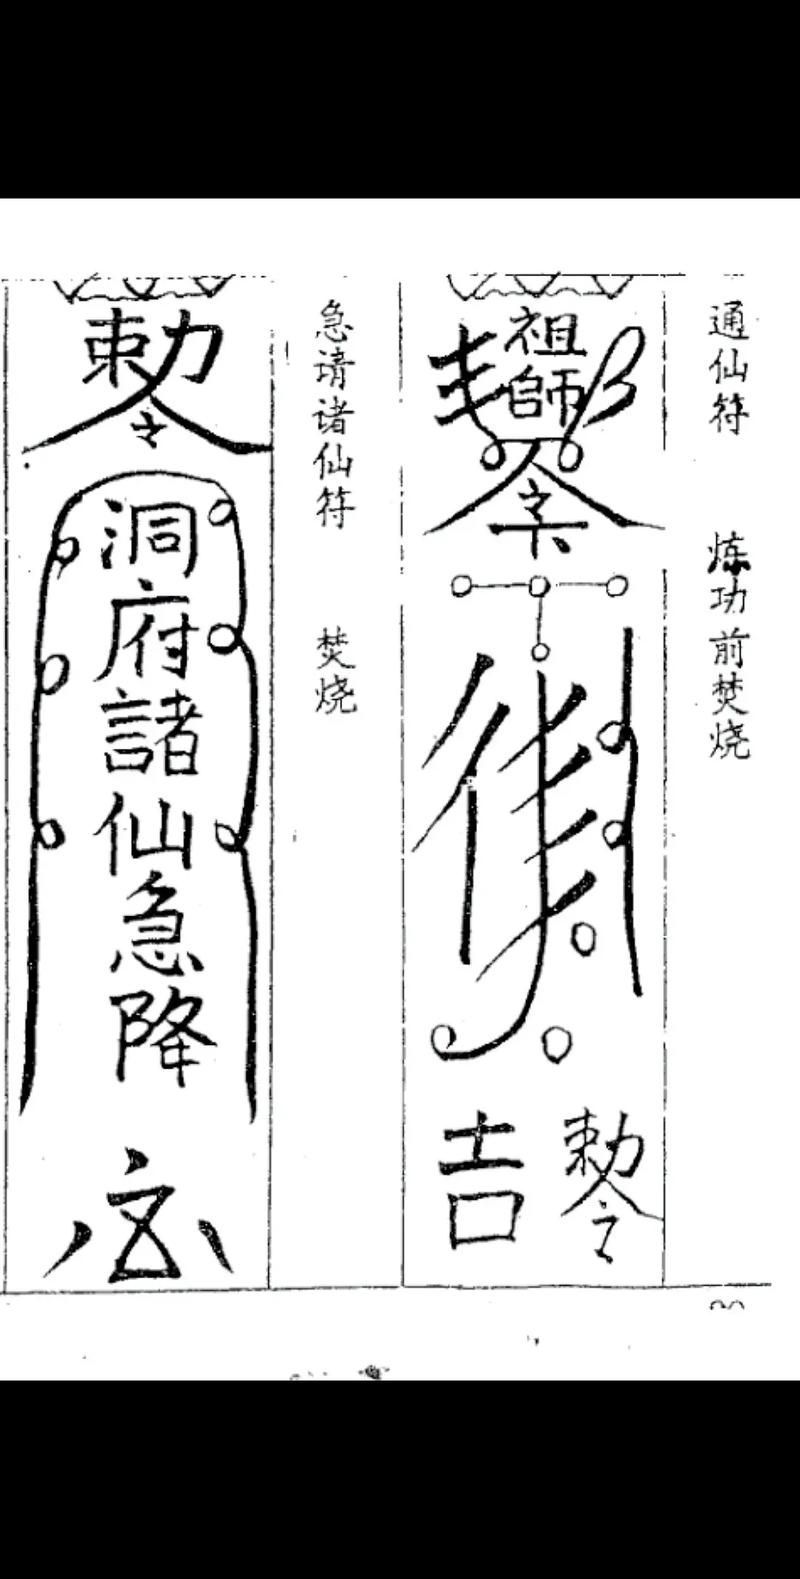 通仙符 炼功前焚烧
祖師
敕令
吉
急请诸仙符 焚烧
敕令
洞府諸仙急降